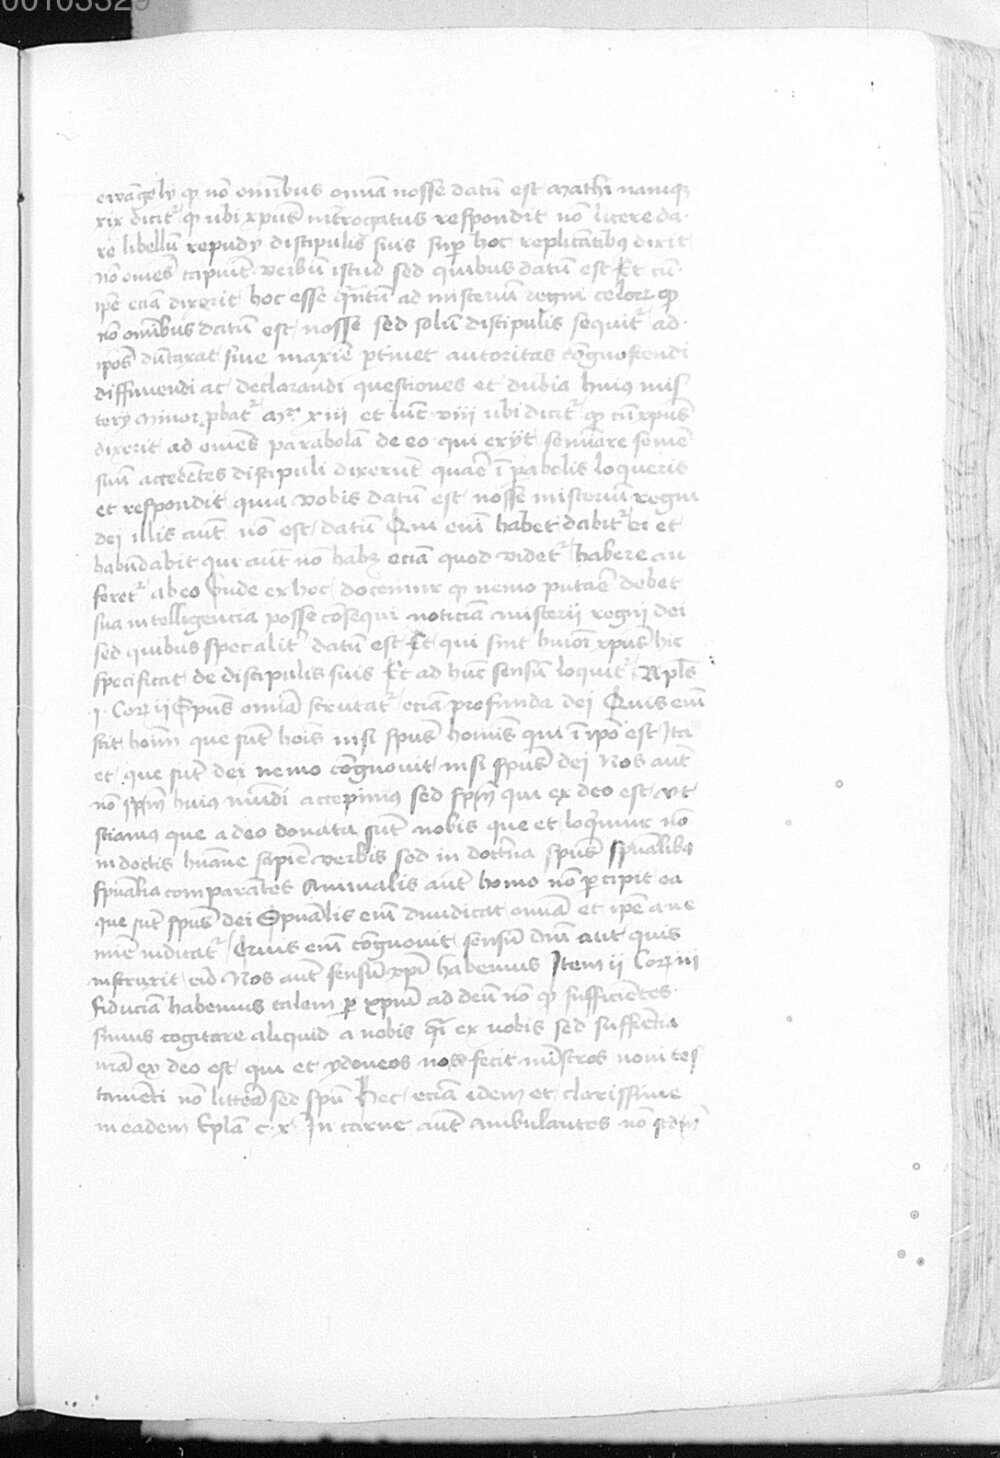 00103329
ewāgely ꝙ nō omībus omīa nosse datū est Mathī namqꝫ
xix dicit᷑ ꝙ ubi xpūs int̄rogatus respondit nō licere da-
re libellū repudy discipulis suis suꝑ hoc replicātibꝰ dixit
nō omēs capiūt verbū istud sed quibus datū est Et cū
ipē eciā dixerit hoc esse q̄ntū ad misteriū regni celoꝝ ꝙ
nō omībus datū est nosse sed solū discipulis sequit᷑ ad
ipōs dūtaxat siue maxīe ꝑtinet autoritas cōgnoscendi
diffiniendi ac declarandi questiones et dubia huiꝰ mis
tery Minor ꝓbat᷑ Mᵗ xiii et luc̄ viii ubi dicit᷑ ꝙ cū xpūs
dixerit ad omēs parabolā de eo qui exÿt semīare semē
suū accedētes discipuli dixerūt quāe ī ꝑabolis loqueris
et respondit quia vobis datū est nosse misteriū regni
dei illis aūt nō est datū Qui enī habet dabit᷑ ei et
habūdabit qui aūt nō habꝫ eciā quod videt᷑ habere au
feret᷑ ab eo Vnde ex hoc docemur ꝙ nemo putāe debet
sua intelligencia posse cōsequi noticiā misterii regni dei
sed quibus specalit̄ datū est Et qui sint huiōī xpūs hic
specificat de discipulis suis Et ad hūc sensū loquit᷑ Apl̄s
i Coꝝ ii Spūs omīa scrutat᷑ eciā profunda dei Quis enī
scit hoīm que sūt hoīs nisi spūs homīs qui ī ipō est Ita
et que sūt dei nemo cōgnouit nisi spūs dei Nos aūt
nō spm̄ huius mūdi accepimꝰ sed spm̄ qui ex deo est vt
sciamus que a deo donata sūt nobis que et loq̄mur nō
in doctis hūane sapiē verbis sed in doct̄na spūs spūalibꝰ
spūalia comparātes Animalis aūt homo nō ꝑcipit ea
que sūt spūs dei Spūalis enī diiudicat omīa et ipē a ne
mīe iudicat᷑ Quis enī cōgnouit sensū dnī aut quis
instruxit eū Nos aūt sensū xpī habemus Item ii Coꝝ iii
fiduciā habemus talem ꝑ xpm̄ ad deū nō ꝙ sufficiētes
simus cogitare aliquid a nobis q̄i ex nobis sed sufficiētia
nrā ex deo est qui et ydoneos nos fecit mīstros noui tes
tamēti nō littera sed spū Hec eciā idem et clarissime
in eadem Epl̄a c x In carne aūt ambulantes nō scdm̄